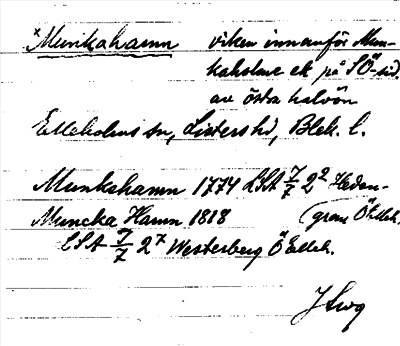 ×Munkahamn viken innanför Mun-
kaholme ek på SÖ-sid.
av östra halvön
Elleholms sn, Listers hd, Blek. l.
Munkahamn 1774 LSA 7/7 2² Heden-
Muncka Hamn 1818 (gran Ö Elleh.
LSA 7/7 2⁷ Westerberg Ö Elleh.